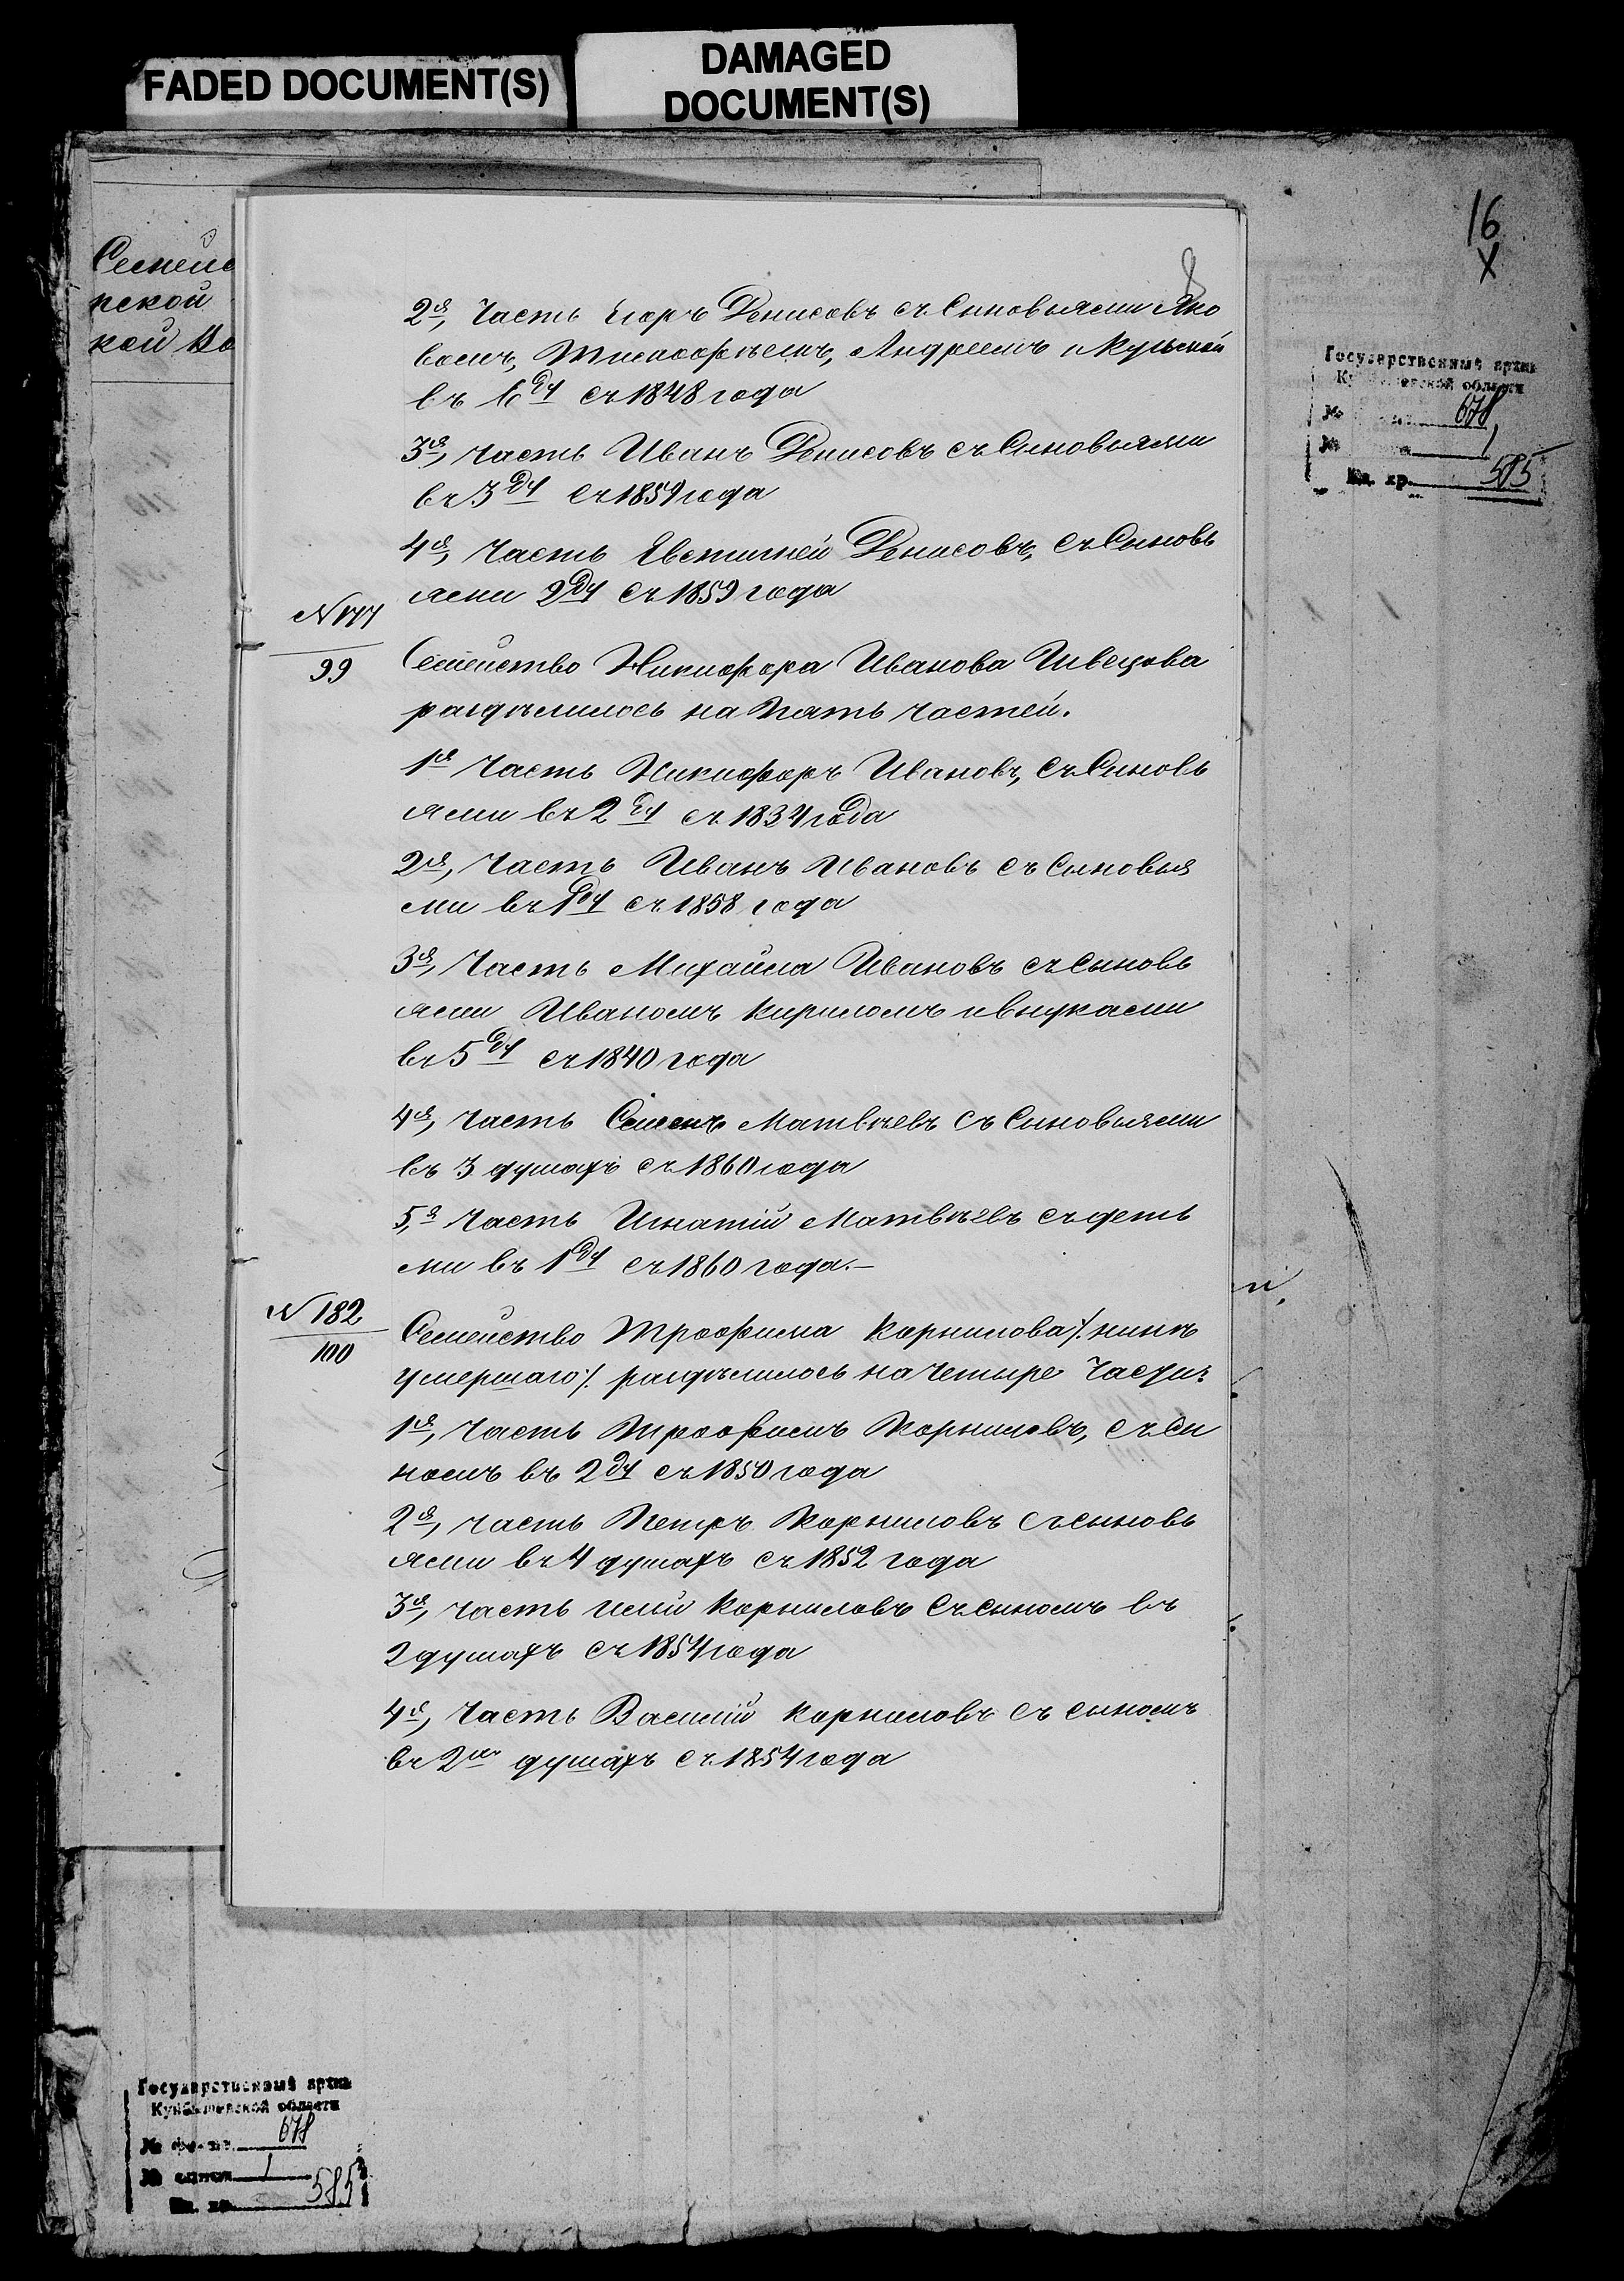 FADED DOCUMENT(S)
DAMAGED
DOCUMENT(S)
16
Х
8
Семейс
нской
кой Во
Государственный архив
Куйбышевской области
№ фонда 678
№ описи 1
Ед. хр. 585
2я, Часть Егоръ Денисовъ съ Сыновьями Яко
вомъ, Тимофѣемъ, Андреемъ и Кузьмой
въ 6 ду съ 1848 года
3я, часть Иванъ Денисовъ съ Сыновьями
въ 3 ду съ 1859 года
4я, Часть Евстигней Денисовъ, съ Сыновь
ями 2 ду съ 1859 года
N 177
99
Семейство Никифора Иванова Швецова
раздѣлилось на Пять частей.
1я Часть Никифоръ Ивановъ, съ Сыновь
ями въ 2 ду съ 1834 года
2я, Часть Иванъ Ивановъ съ Сыновья
ми въ 1 ду съ 1858 года
3я, Часть Михайла Ивановъ съ сыновь
ями Иваномъ Кириломъ и внуками
въ 5 ду съ 1840 года
4я, часть Семенъ Матвѣевъ съ Сыновьями
въ 3 душахъ съ 1860 года
5,я Часть Игнатій Матвѣевъ съ деть
ми въ 1 ду съ 1860 года.—
N 182
100
Семейство Трофима Корнилова /. нынѣ
умершаго /. раздѣлилось на Четыре Части:
1я, Часть Трофимъ Корниловъ, съ Сы
номъ въ 2 ду съ 1850 года
2я, часть Петръ Корниловъ съ сыновь
ями въ 4 душахъ съ 1852 года
3я, часть Корниловъ съ сыномъ въ
2 душахъ съ 1854 года
4я, Часть Василій Корниловъ съ сыномъ
въ 2хъ душахъ съ 1854 года
Государственный архив
Куйбышевской области
№ фонда 678
№ описи 1
Ед. хр. 585